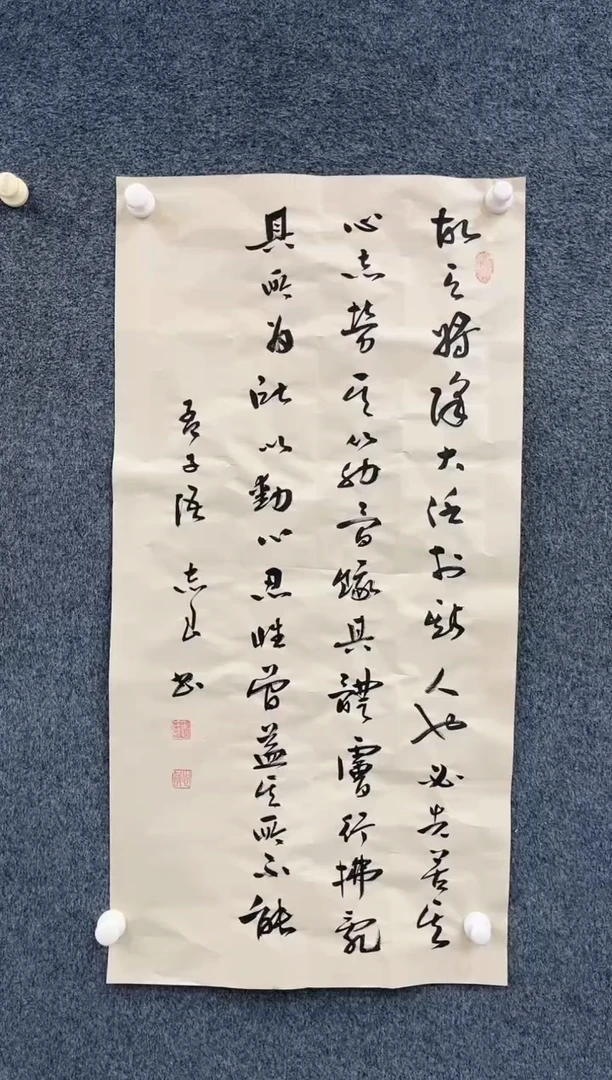 故天將降大任於斯人也必先苦其
心志勞其筋骨餓其體膚行拂亂
其所為所以動心忍性曾益其所不能
孟子语 志 书